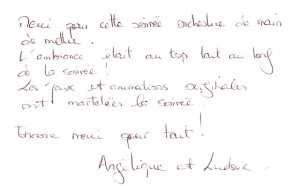 Merci pour cette soirée orchestrée de main
de maître.
L'ambiance était au top tout au long
de la soirée!
Les jeux et animations originales
ont la soirée
Encore merci pour tout!
Angélique et Ludovic